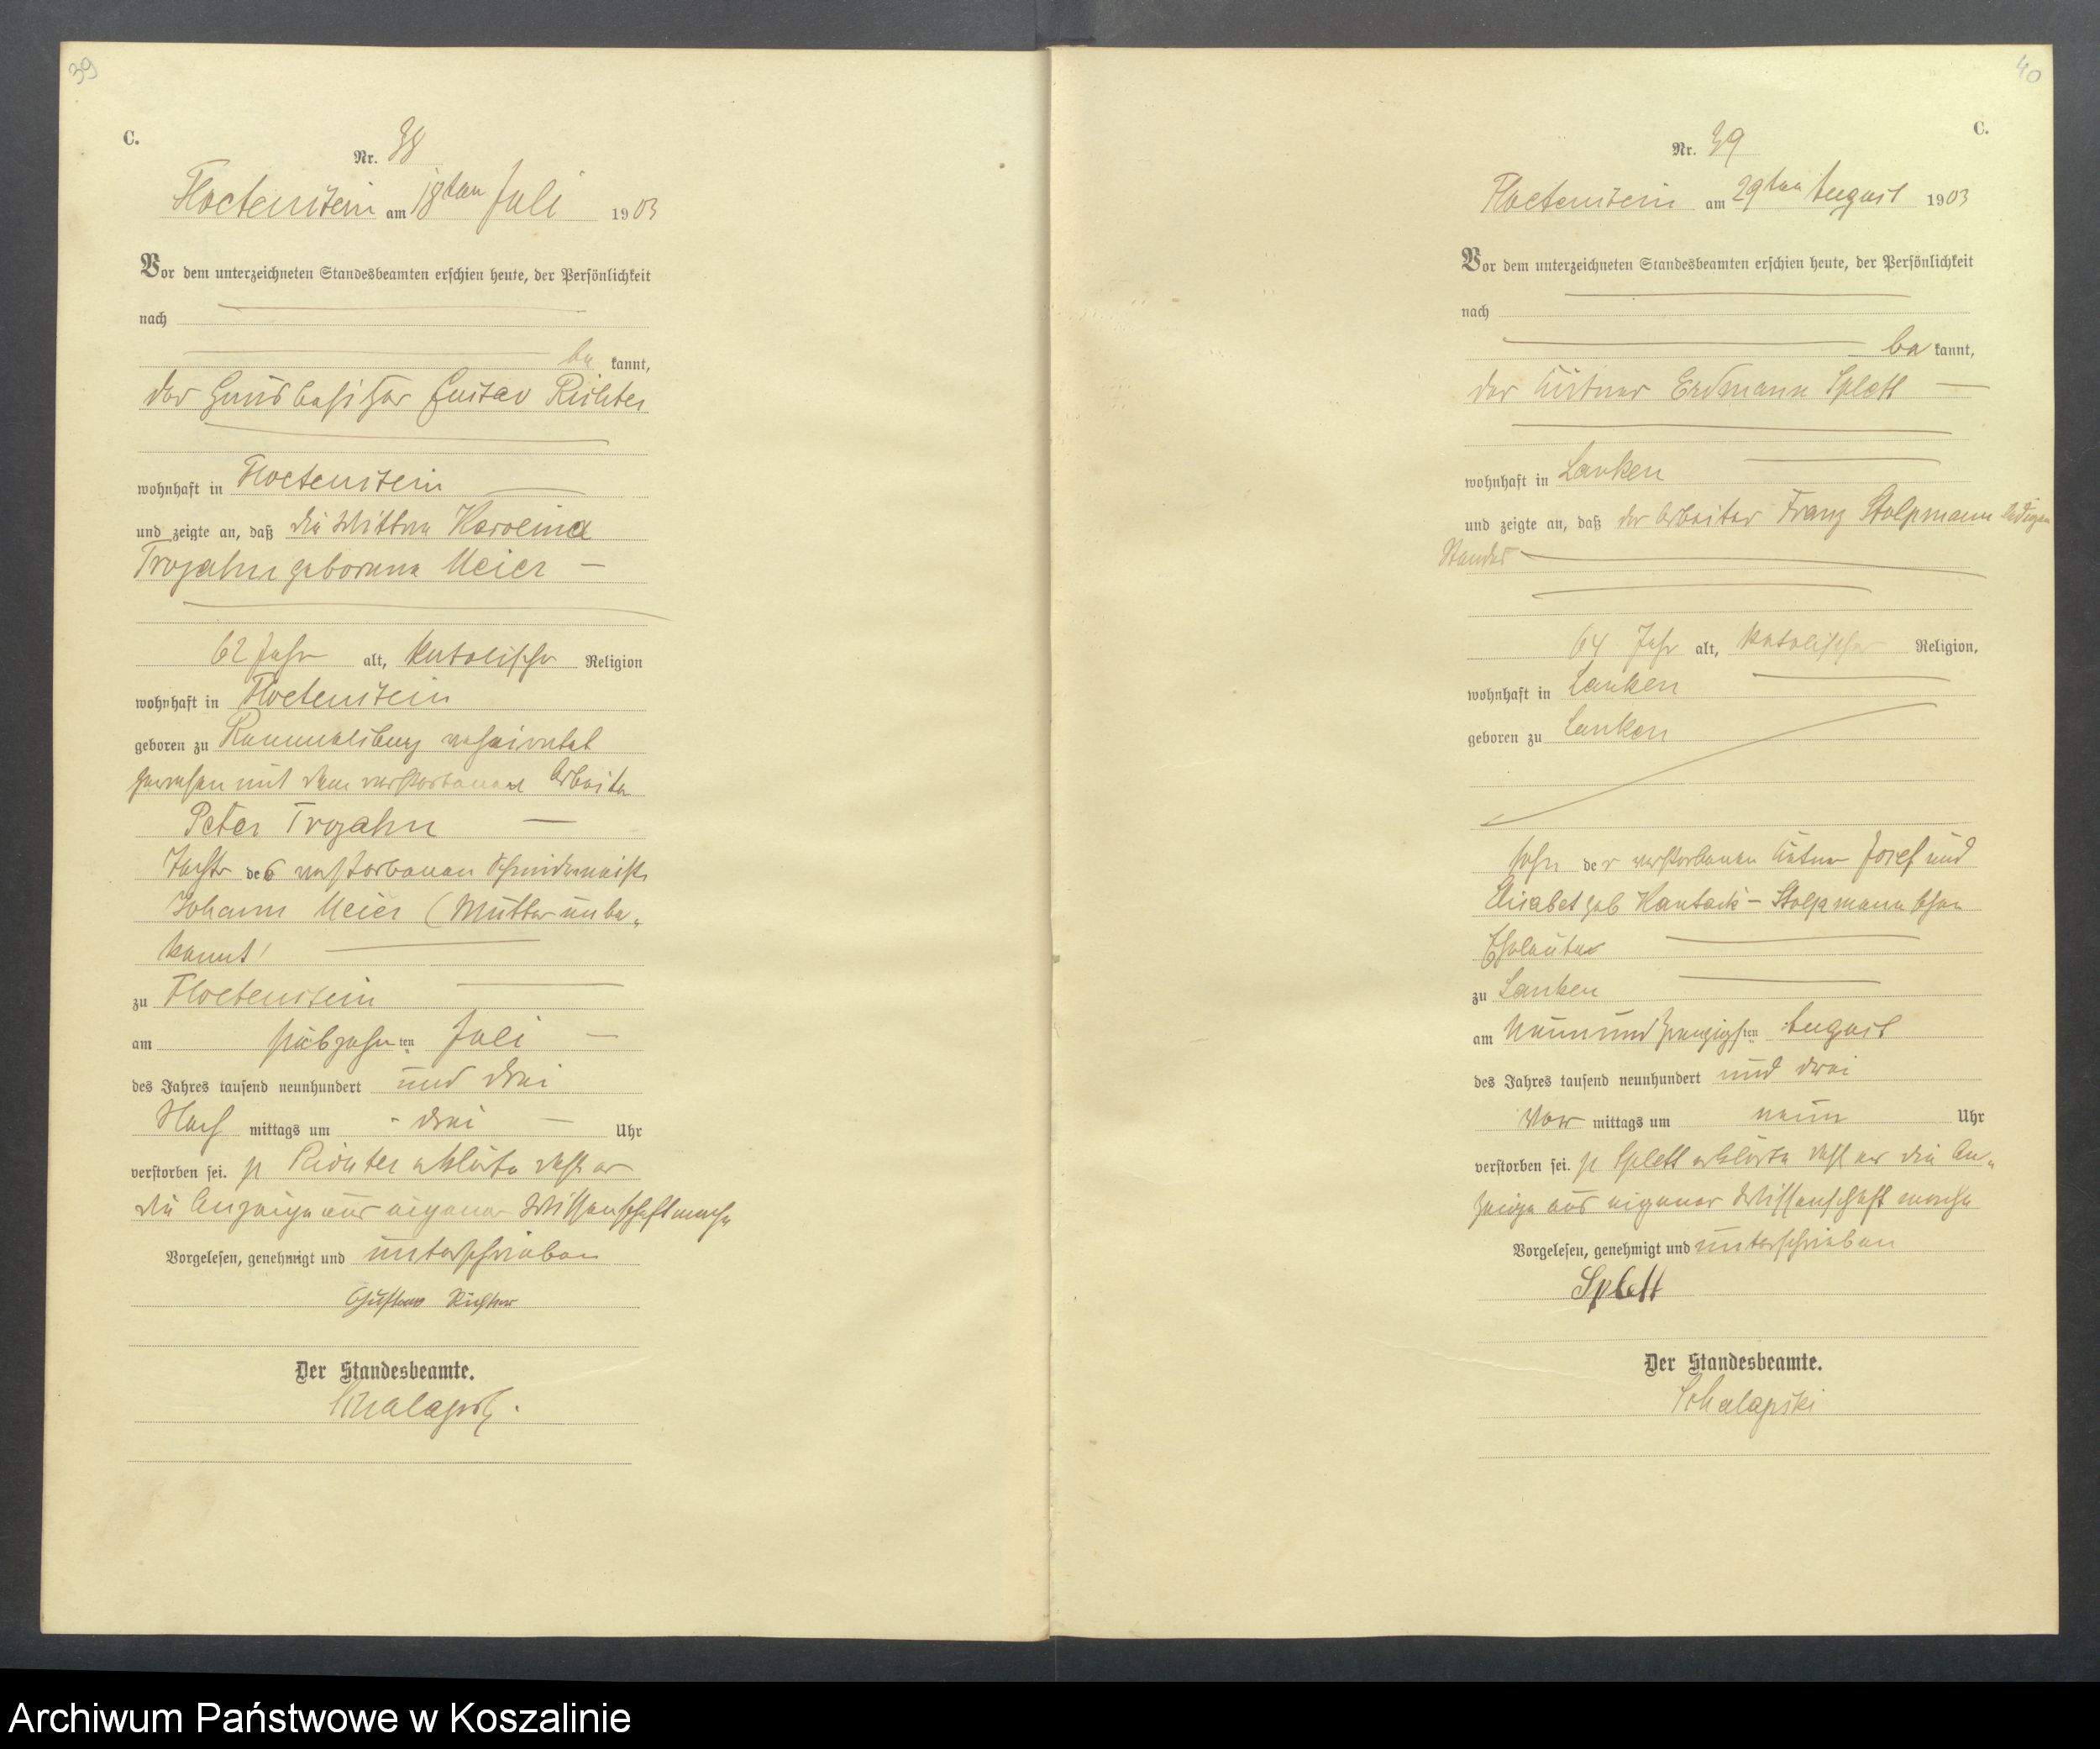 39
C.
Nr. 38
Floetenstein am 18ten Juli 1903
Vor dem unterzeichneten Standesbeamten erschien heute, der Persönlichkeit
nach
be kannt,
der Hausbesitzer Gustav Richter
wohnhaft in Floetenstein
und zeigte an, daß die Wittwe Karolina
Trojahn geborene Meier
62 Jahr alt, katolischer Religion
wohnhaft in Floetenstein
geboren zu Rummelsburg verheirathet
gewesen mit dem verstorbenen Arbeiter
Peter Trojahn
Tochter des verstorbenen Schmidemeister
Johann Meier (Mutter unbe„
kannt)
zu Floetenstein
am siebzehnten Juli
des Jahres tausend neunhundert und drei
Nach mittags um drei Uhr
verstorben sei. p Richter erklärte daß er
die Anzeige aus eigener Wissenschaft mache
Vorgelesen, genehmigt und unterschrieben
Gustav Richter
Der Standesbeamte.
Schalapski
40
C.
Nr. 39
Floetenstein am 29ten August 1903
Vor dem unterzeichneten Standesbeamten erschien heute, der Persönlichkeit
nach
be kannt,
der Kätner Erdmann Splett
wohnhaft in Lanken
und zeigte an, daß der Arbeiter Franz Stolpmann ledigen
Standes
64 Jahr alt, katolischer Religion,
wohnhaft in Lanken
geboren zu Lanken
Sohn der verstorbenen Kätner Josef und
Elisabet geb Kantack - Stolpmann schen
Eheleute
zu Lanken
am neunundzwanzigsten August
des Jahres tausend neunhundert und drei
Vor mittags um neun Uhr
verstorben sei. p Splett erklärte daß er die An„
zeige aus eigener Wissenschaft mache
Vorgelesen, genehmigt und unterschrieben
Splett
Der Standesbeamte.
Schalapski
Archiwum Państwowe w Koszalinie